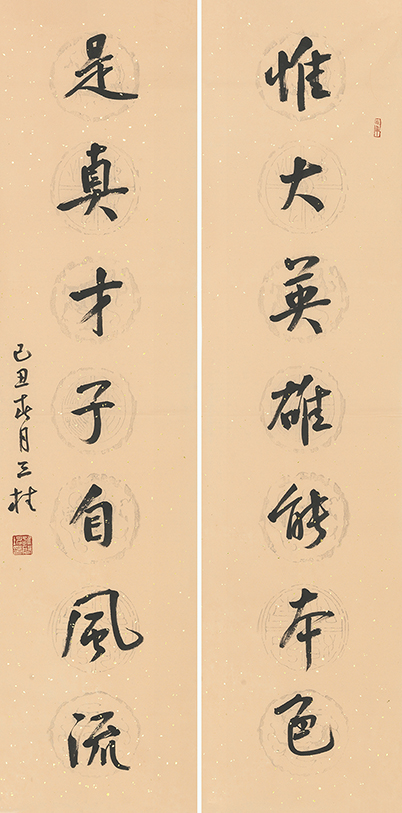 惟大英雄能本色
是真才子自風流
己丑春月三桂